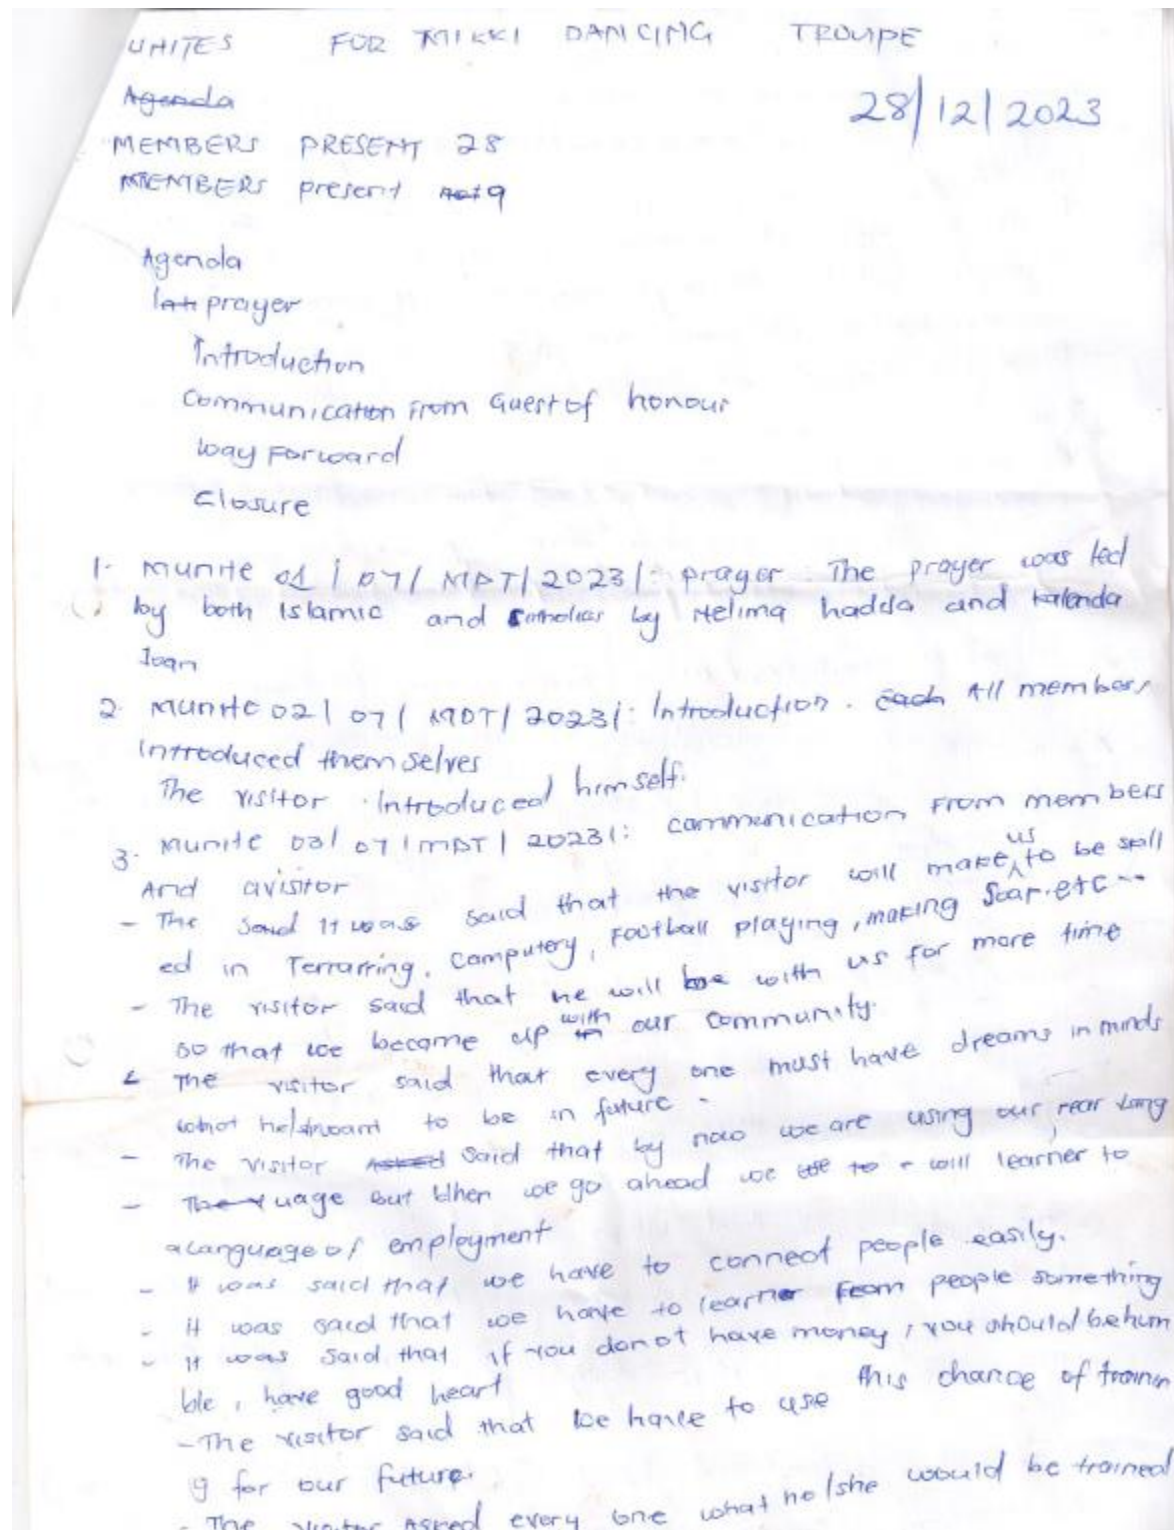 UNITES FOR MIKKI DANCING TROUPE
Agenda
28/12/2023
MEMBERS PRESENT 28
MEMBERS present Not 9
Agenda
prayer
Introduction
Communication From Guest of honour
way Forward
Closure
1. munite 01/07/MDT/2023/: prayer. The prayer was led
by both Islamic and Catholics by Helima hadda and Kalenda
Joan
2. munite 02/07/MDT/2023/: Introduction. Each All members
Introduced themselves
The visitor Introduced himself.
3. munite 03/07/MDT/2023/: communication From members
And avisitor
- The Said It was said that the visitor will make us to be skill
ed in Terrarring, computery, Football playing, making Soap.etc
- The visitor said that he will be with us for more time
so that we become up with our community.
- The visitor said that every one must have dreams in minds
what he/she want to be in future.
- The visitor Asked Said that by now we are using our lang
- uage but When we go ahead we to will learner to
aLanguage of employment
- It was said that we have to connect people easily.
- it was said that we have to learner From people something
- It was said that if you donot have money, you should be hum
ble, have good heart
- The visitor said that we have to use this chance of trainin
g for our future.
- The visitor Asked every one what he/she would be trained